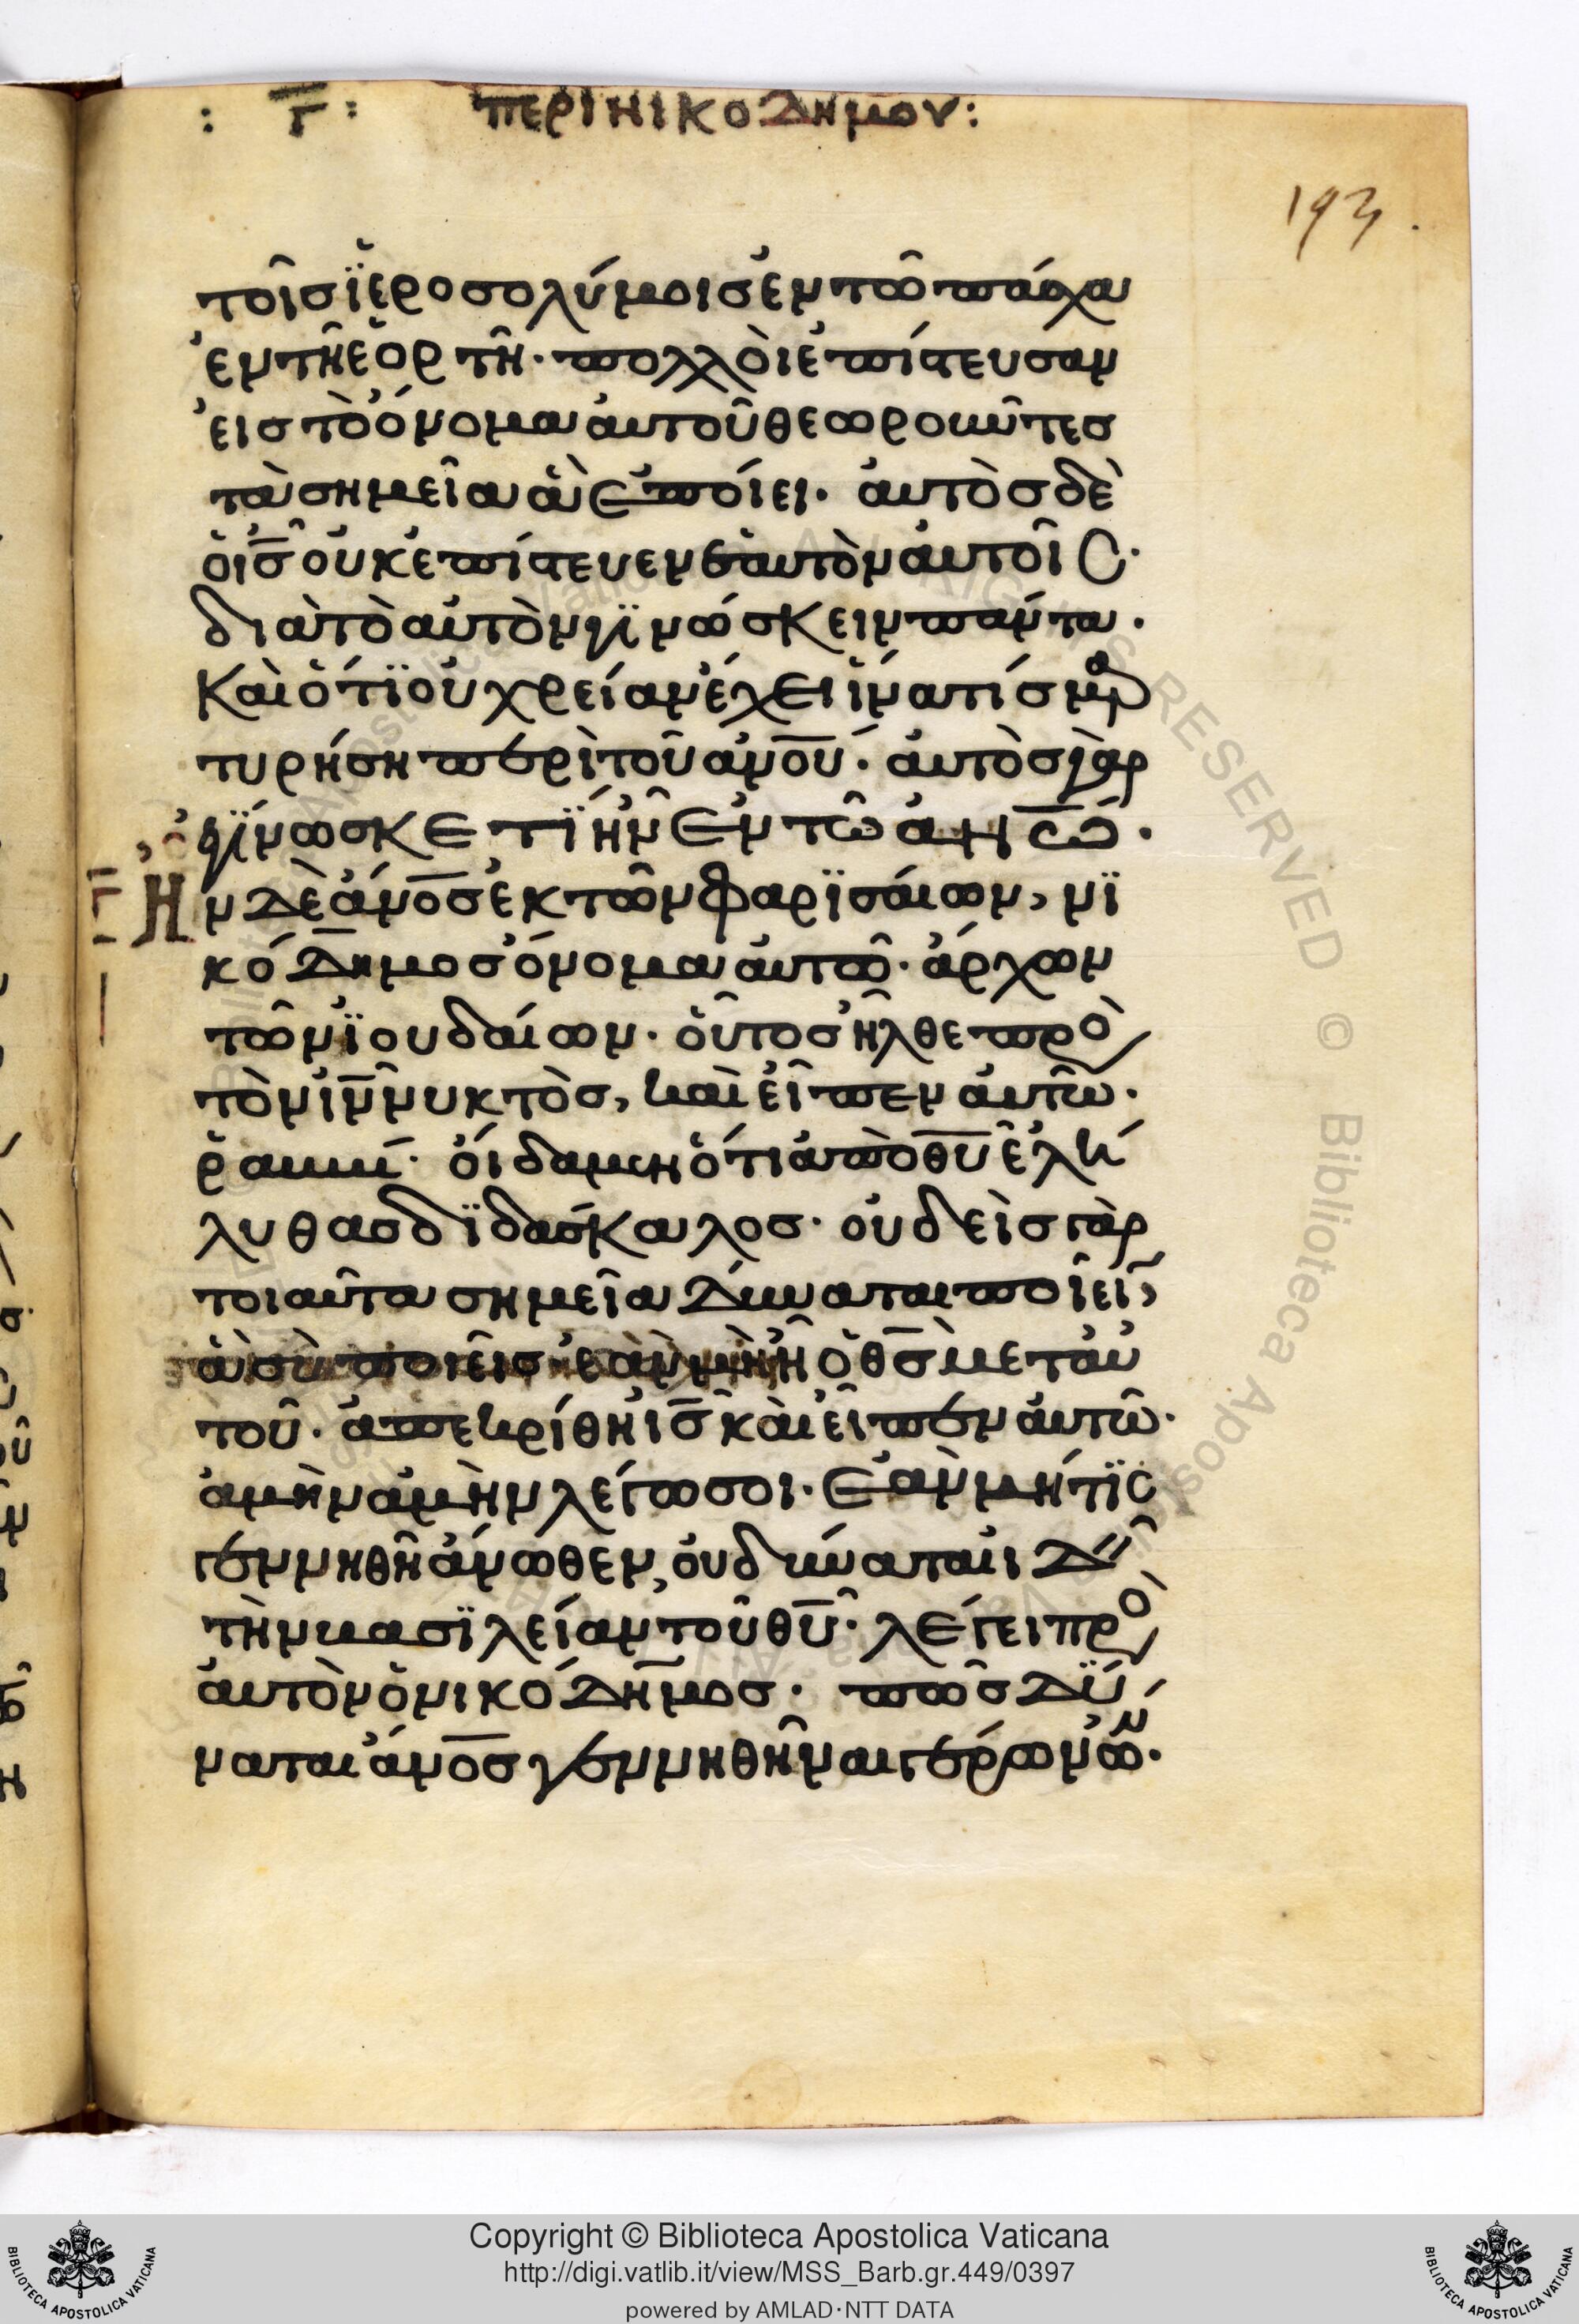 : Γ̅ : ΠΕΡΙ ΝΙΚΟΔΗΜΟΥ:
193.
τοῖσ ἱεροσολύμοισ ἐν τῶ πάσχα
ἐν τῆ ἑορτῆ· πολλοὶ ἐπίστευσαν
εἰσ τὸ ὄνομα αὐτοῦ θεωροῦντεσ
τὰ σημεῖα ἃ ἐποίει· αὐτὸσ δὲ
ὁ ισ̅ οὐκ ἐπίστευεν ἑαυτὸν αὐτοῖσ·
διὰ τὸ αὐτὸν γϊνώσκειν πάντα·
καὶ ὅτϊ οὐ χρείαν ἔχει ἵνα τίσ μαρ
τυρήση περὶ τοῦ ἀνο̅υ̅· αὐτὸσ γὰρ
ἐγίνωσκε τϊ ἦν ἐν τῶ ἀνω̅·
Γ̅ Ἦν δὲ ἄνο̅σ ἐκ τῶν φαρϊσαίων, νϊ
κόδημοσ ὄνομα αὐτῶ· ἄρχων
τῶν ϊουδαίων· οὗτοσ ἦλθε πρὸσ
τὸν ιν̅ νυκτὸσ, καὶ εἶπεν αὐτῶ·
ῥαββί· οἴδαμεν ὅτι ἀπὸ θυ̅ ἐλή
λυθασ δϊδάσκαλοσ· οὐδεὶσ γὰρ
τοιαῦτα σημεῖα δύναται ποιεῖν,
ἃ σὺ ποιεῖσ ἐὰν μὴ ἦ ὁ θσ̅ μετ αὐ
τοῦ· ἀπεκρίθη ισ̅ καὶ εἶπεν αὐτῶ·
ἀμὴν ἀμὴν λέγω σοι· ἐὰν μή τϊσ
γεννηθῆ ἄνωθεν, οὐ δύναται ἰδεῖν
τὴν βασϊλείαν τοῦ θυ̅· λέγει πρὸσ
αὐτὸν ὁ νικόδημοσ· πῶσ δϋ
ναται ἄνο̅σ γεννηθῆναι γέρων ὤν·
Copyright © Biblioteca Apostolica Vaticana
http://digi.vatlib.it/view/MSS_Barb.gr.449/0397
powered by AMLAD·NTT DATA
BIBLIOTECA APOSTOLICA VATICANA
BIBLIOTECA APOSTOLICA VATICANA